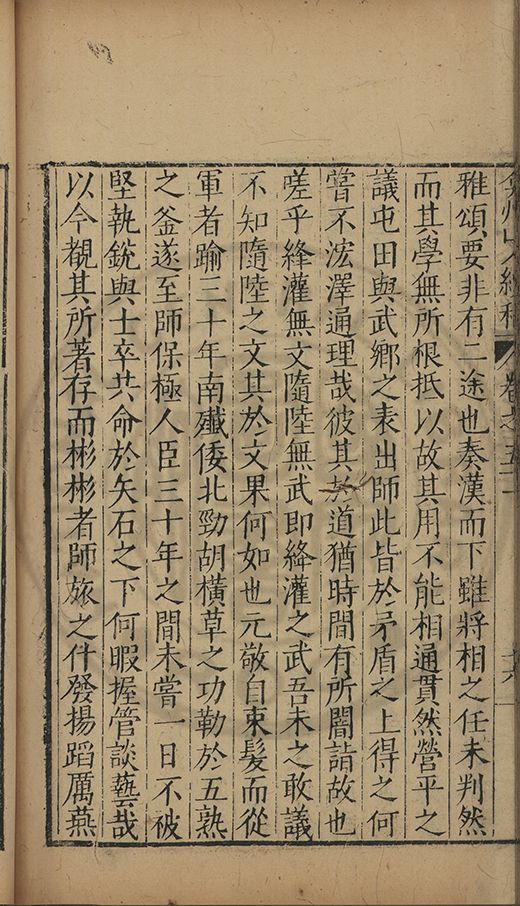 弇州山人續稿 卷之五十一
雅頌要非有二途也秦漢而下雖將相之任未判然
而其學無所根抵以故其用不能相通貫然營平之
議屯田與武鄉之表出師此皆於矛盾之上得之何
嘗不浤澤通理哉彼其道猶時間有所闇詣故也
嗟乎絳灌無文隨陸無武即絳灌之武吾未之敢議
不知隨陸之文其於文果何如也元敬自束髮而從
軍者踰三十年南殲倭北勁胡橫草之功勒於五熟
之釜遂至師保極人臣三十年之間未嘗一日不被
堅執銳與士卒共命於矢石之下何暇握管談藝哉
以今覩其所著存而彬彬者師旅之什發揚蹈厲燕